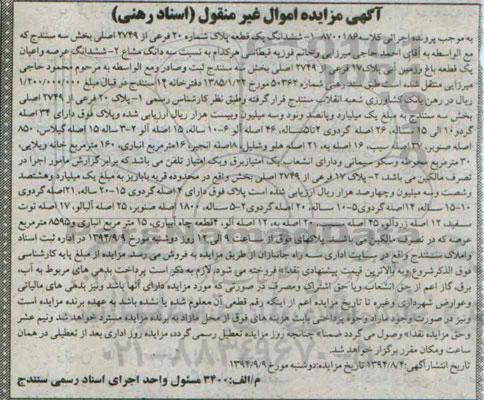 آگهی مزایده اموال غیر منقول (اسناد رهنی)
به موجب پرونده اجرائی کلاسه ۸۷۰۰۱۸۶ ۱- ششدانگ یک قطعه پلاک شماره ۲۰ فرعی از ۲۷۴۹ اصلی بخش سه سنندج که
مع الواسطه به آقای احمد حاجی میرزایی وخانم فوزیه قیطاسی هرکدام به نسبت سه دانگ مشاع ۲- ششدانگ عرصه واعیان
یک قطعه باغ ورزمین آبی پلاک ۱۷ فرعی از ۲۷۴۹ اصلی بخش سه سنندج ثبت وصادر ومع الواسطه به مرحوم محمود حاجی
میرزایی منتقل طبق سند رهنی شماره ۵۰۳۶۲ مورخ ۱۳۸۵/۱/۲۲ دفترخانه ۱۲ سنندج در قبال مبلغ ۱/۲۰۰/۰۰۰/۰۰۰
ریال در رهن بانک کشاورزی شعبه انقلاب سنندج قرار گرفته وطبق نظر کارشناس رسمی ۱- پلاک ۲۰ فرعی از ۲۷۴۹ اصلی
بخش سه سنندج به مبلغ یک میلیارد وپانصد ونود وسه میلیون وبیست هزار ریال ارزیابی شده وپلاک فوق دارای ۳۴ اصله
گردو ۱۰ الی ۱۵ ساله، ۲۶ اصله گردوی ۲تا۵ساله، ۴۶ اصله آلو ۶-۱۰ ساله، ۱۵ اصله آلر ۲-۳ ساله ۱۵ اصله گیلاس، ۸۵۰
اصله صنوبر، ۳۷ اصله سیب، ۱۶ اصله به، ۲۱ اصله هلو وشلیل، ۸ اصله انجیر، ۱۶مترمربع انباری، ۱۶۰ مترمربع خانه ویلایی،
۳۰ مترمربع محوطه وسکو سیمانی ودارای انشعاب یک امتیازبرق ویک امتیاز تلفن می باشد که برابر گزارش مامور اجرا در
تصرف مالک می باشد. ۲- پلاک ۱۷ فرعی از ۲۷۴۹ اصلی بخش واقع در محدوده قریه بابا‌ریز به مبلغ یک میلیارد وهشتصد
وشصت و سه میلیون وچهارصد هزار ریال ارزیابی شده است پلاک فوق دارای ۴ اصله گردوی ۱۵-۲۰ ساله، ۲۱اصله گردوی
۱۰-۱۵ ساله، ۱۴اصله گردوی ۵-۱۰ ساله، ۲۰ اصله گردوی ۲-۵ ساله، ۱۸۰۰ اصله صنوبر، ۲۵ اصله آلبالو، ۱۷ اصله توت
سفید، ۱۲ اصله زردآلو، ۲۵ اصله سیب، ۲۰ اصله به، ۱۲ اصله آلو، ۴قطعه سیمانی، ۱۵ متر مربع انباری و ۸۵۹۵ مترمربع
عرصه که در تصرف مالکین می باشند. پلاکهای فوق از ساعت ۹ الی ۱۲ روز دوشنبه مورخ ۱۳۹۴/۹/۹ در اداره ثبت اسناد
واملاک سنندج واقع در سایت اداری سه راه جانبازان از طریق مزایده به فروش می رسد. مزایده از مبلغ پایه کارشناسی
فوق الذکر شروع وبه بالاترین قیمت پیشنهادی نقداً فروخته می شود، لازم به ذکر است پرداخت بدهی های مربوط به آب،
برق، گاز اعم از حق انشعاب ویا حق اشتراک ومصرف در صورتی که مورد مزایده دارای آنها باشد ونیز بدهی های مالیاتی
وعوارض شهرداری وغیره تا تاریخ مزایده اعم از اینکه رقم قطعی آن معلوم شده یا نشده باشد به عهده برنده مزایده است
ونیز در صورت وجود مازاد وجوه پرداختی بابت هزینه های فوق از محل مازاد به برنده مزایده مسترد خواهد شد ونیم عشر
وحق مزایده نقداً وصول می گردد ضمناً چنانچه روز مزایده تعطیل رسمی گردد، مزایده روز اداری بعد از تعطیلی در همان
ساعت ومکان مقرر برگزار خواهد شد.
تاریخ انتشار آگهی: ۱۳۹۴/۸/۴ تاریخ مزایده: دوشنبه مورخ ۱۳۹۴/۹/۹
م/الف: ۳۴۰۰ مسئول واحد اجرای اسناد رسمی سنندج
۰۲۱-۸۸۳۴۹۶۷۰